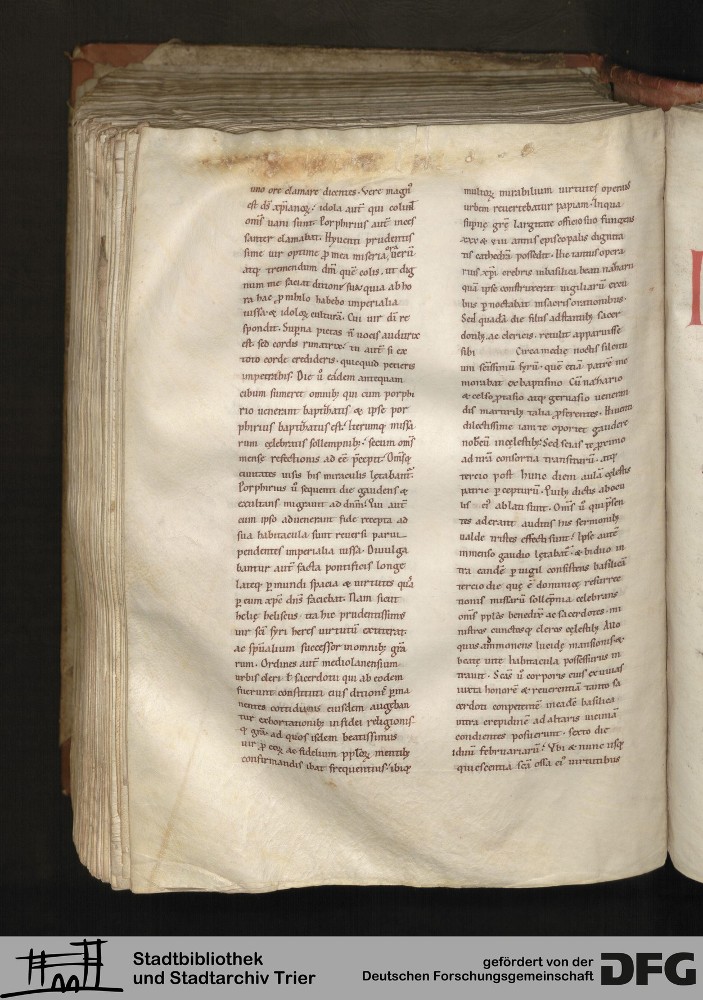 uno ore clamare dicentes. Vere magn᷒
est ds̄ xp̄ianoꝝ: idola aut̄ qui colunt
om̄s uani sunt. Porphirius aut̄ inces
santer clamabat. Hyuenti prudentis
sime uir optime ꝓ mea miseria ora uerū
atq; tremendum dm̄ quē colis. ut dig
num me faciat ditioni suę quia ab ho
ra hac ꝓ nihilo habebo imperialia
iussa & idoloꝝ culturā. Cui uir dī re
spondit. Supna pietas n̄ uocis auditrix
est sed cordis rimatrix: tu aut̄ si ex
toto corde credideris. quicquid petieris
impetrabis. Die ū eadem antequam
cibum sumeret omnib; qui cum porphi
rio uenerant baptizatis & ipse por
phirius baptizatus est. Iterumq; missa
rum celebratis sollempnib;. secum om̄s
mense refectionis ad ēē p̄cepit. Om̄sq;
ciuitates uisis his miraculis lętabant᷑.
Porphirius ū sequenti die gaudens &
exultans migrauit ad dnm̄. Qui aut̄
cum ipso aduenerant fide recepta ad
sua habitacula sunt reuersi parui
pendentes imperialia iussa. Diuulga
bantur aut̄ facta pontificis longe
lateq; ꝑ mundi spacia & uirtutes quas
ꝑ eum xp̄c dn̄s faciebat. Nam sicut
helię heliseus ita hic prudentissimus
uir sc̄i syri heres uirtutū extiterat.
ac sp̄ualium successor in omnib; gr̄a
rum. Ordines aut̄ mediolanensium
urbis cleri ł sacerdotū qui ab eodem
fuerunt constituti eius ditione ꝑma
nentes cottidianis eiusdem augeban
tur exhortationib; in fidei religionis
q; gr̄a. ad quos isdem beatissimus
uir ꝓ eoꝝ ac fidelium pplōꝝ mentib;
confirmandis ibat frequentius. ibiq;
multoꝝ mirabilium uirtutes operatus
urbem reuertebatur papiam. In qua
supnę grę̄ largitate officio suo fungens
xxx & viii annis episcopalis dignita
tis cathedrā possedit. Hic tantus opera
rius xp̄i crebris in basilica beati nazarii
quā ipse construxerat uigiliarū excu
bus ꝑnoctabat in sacris orationibus.
Sed quadā die filiis adstantib; sacer
dotib; ac clericis. retulit apparuisse
sibi Circa medię noctis silentiū
uirī scissimū syrū. quē etiā patrē me
morabat ex baptismo. Cū nazario
& celso ꝓtasio atq; geruasio ueneran
dis martirib; talia ꝓferentes. Hiuenti
dilectissime iam te oportet gaudere
nobcū in cęlestib;. Sed scias te ꝓximo
ad nr̄a consortia transiturū. atq;
tercio post hunc diem aulā cęlestis
patrie ꝑcepturū. Quib; dictis ab ocu
lis ei᷒ ablati sunt. Om̄s ū qui p̄sen
tes aderant auditis his sermonib;
ualde tristes effecti sunt. Ipse autē
immenso gaudio lętabat᷑. & biduo in
tra eandē ꝑuigil consistens basilicā
tercio die quę ē dominicę resurrec
tionis missarū sollēpnia celebrans
om̄s pplōs benedix̄ ac sacerdotes. mi
nistros cunctosq; cleros cęlestib; Allo
quiis admonens lucidę mansionis &
beatę uitę habitacula possessurus in
trauit. Scm̄ ū corporis eius exuuias
iuxta honorē & reuerentiā tanto sa
cerdoti conpetentē in eadē basilica
intra crepidinē ad altaris uicinia
condientes posuerunt. sexto die
iduū februarūarū. Vbi & nunc usq;
quiescentia sc̄a ossa ei᷒ uirtutibus
Stadtbibliothek
und Stadtarchiv Trier
gefördert von der
Deutschen Forschungsgemeinschaft
DFG